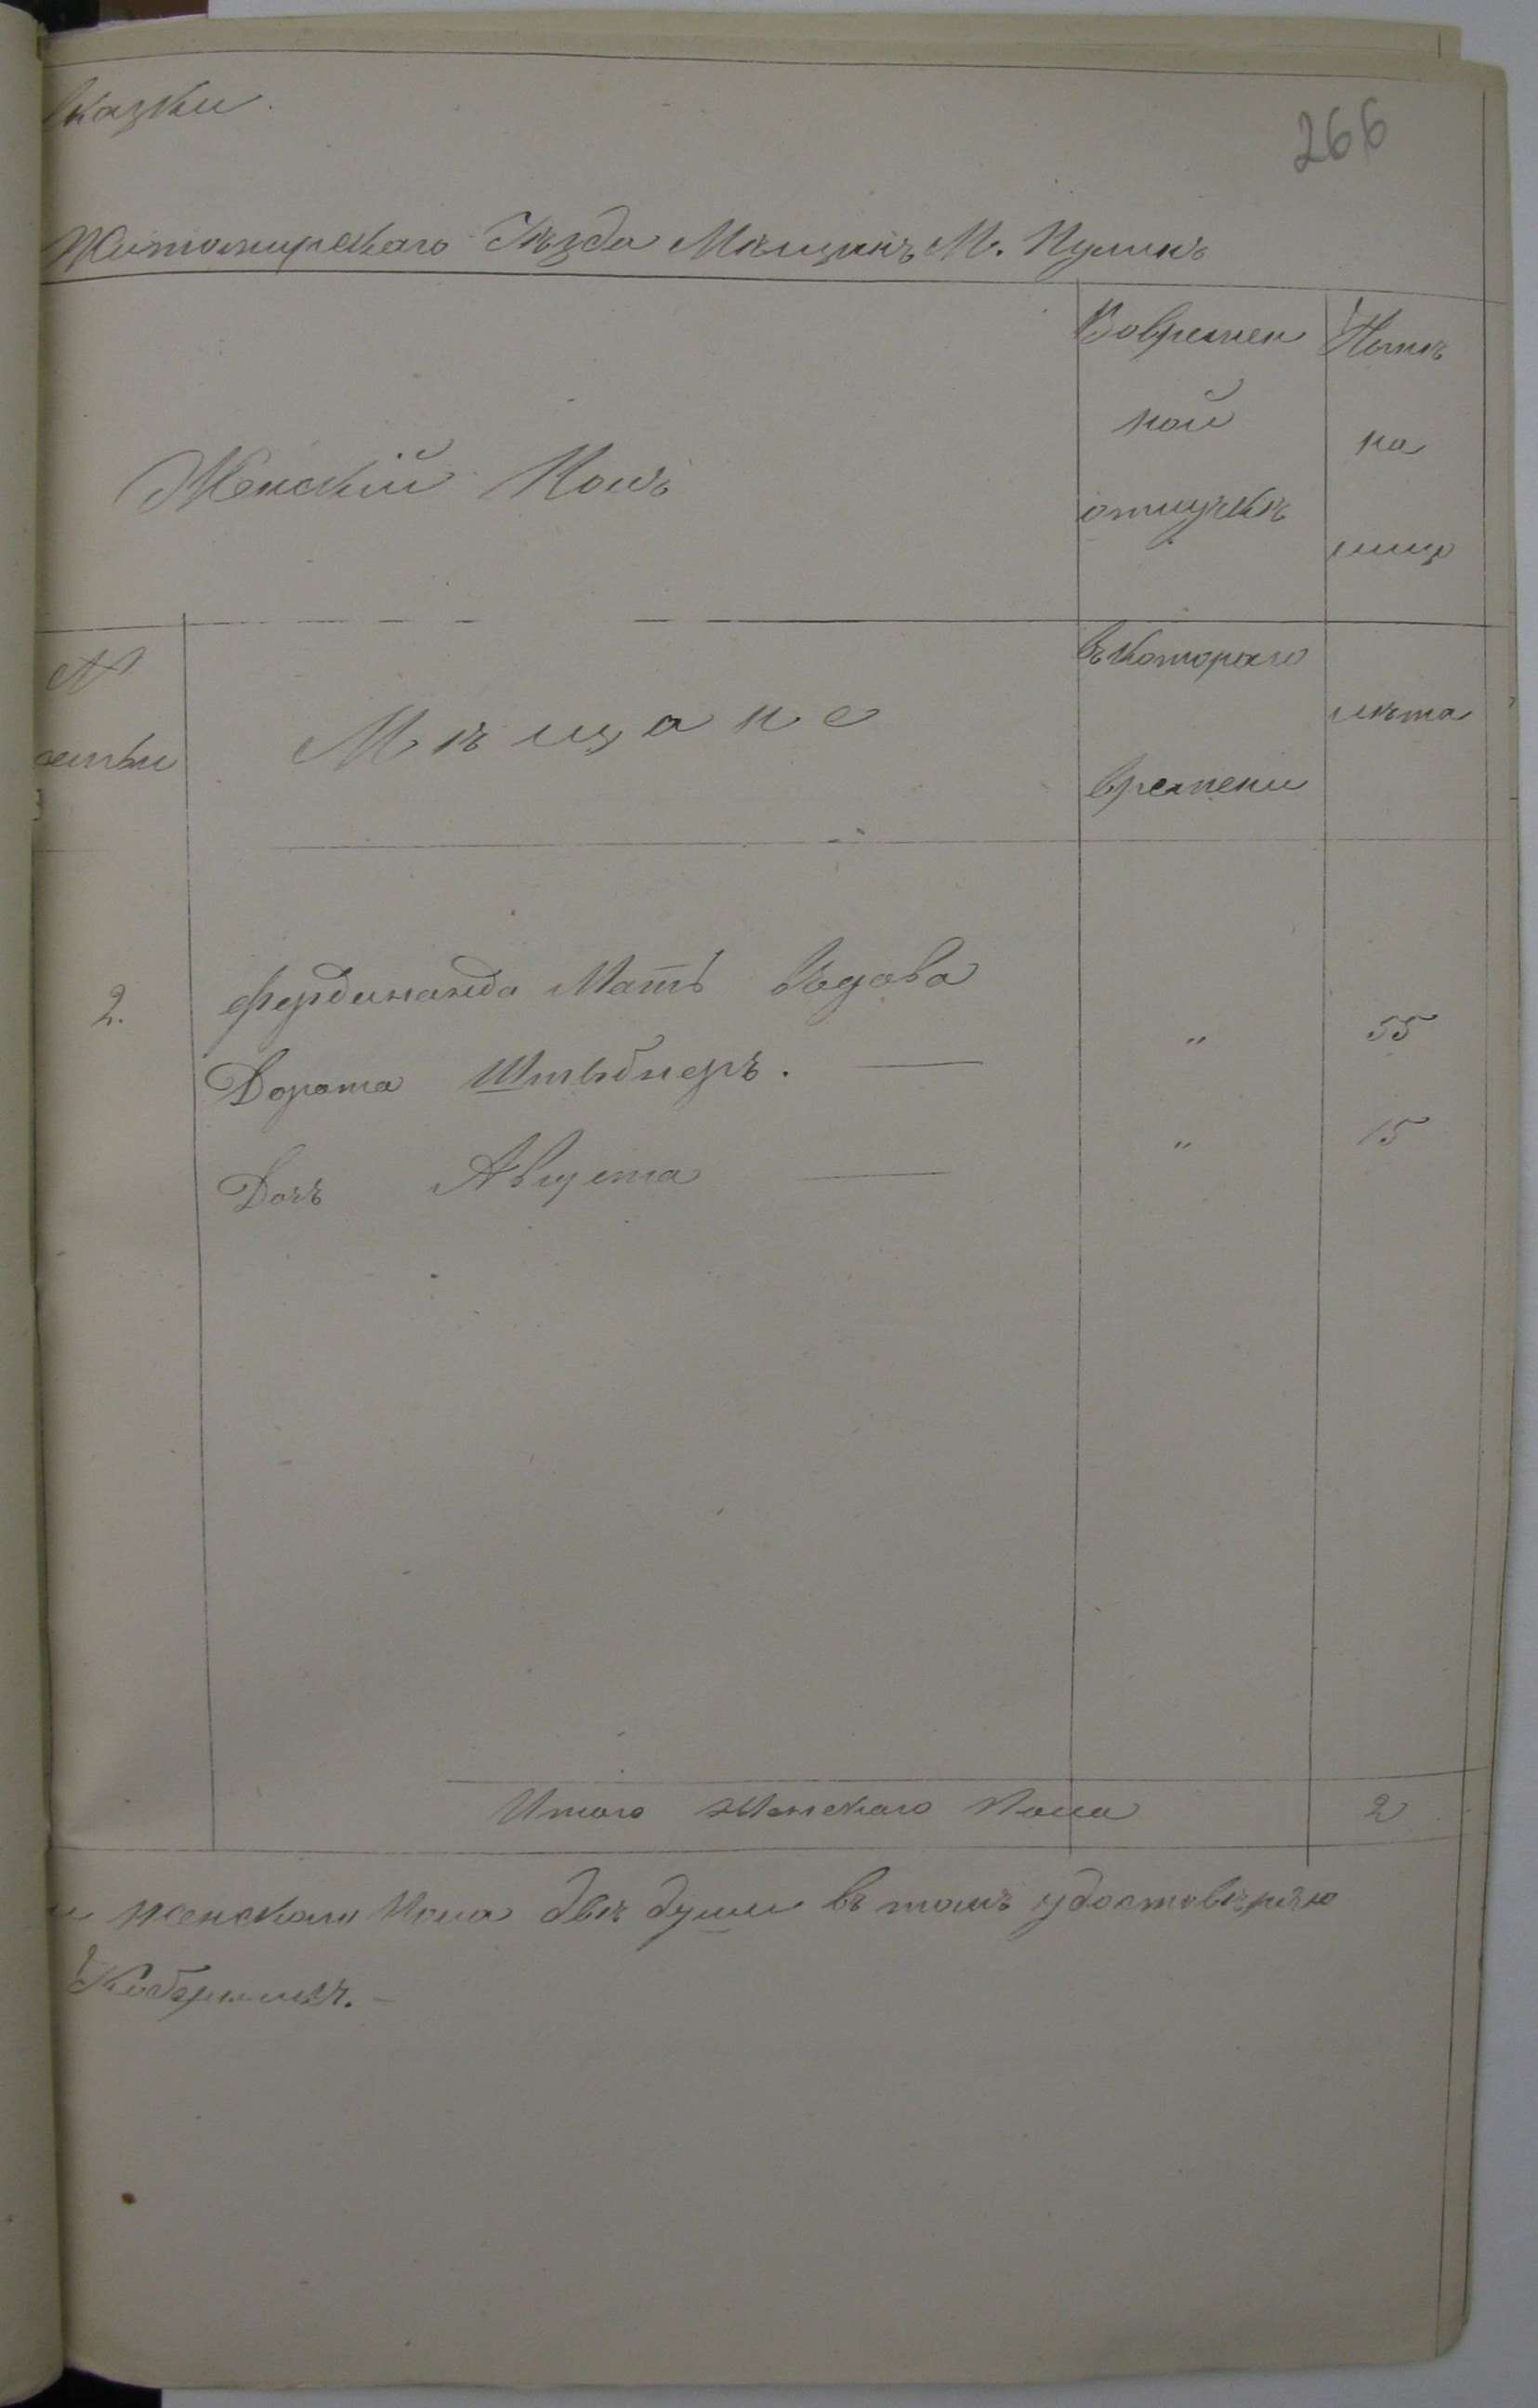 сказки.
266
Житомирскаго Уѣзда Мѣщанъ М. Пулинъ
Женскій Полъ
Вовремен
ной
отлучкѣ
Нынѣ
на
лицо
№
семьи
Мѣщане
съкотораго
времени
лѣта
2.
Фердинанда Мать вдова
Дорота Штыбнеръ. — " 55
Дочъ Августа — " 15
Итого Женскаго Пола 2
и женскаго Пола двѣ души въ томъ удостовѣряю